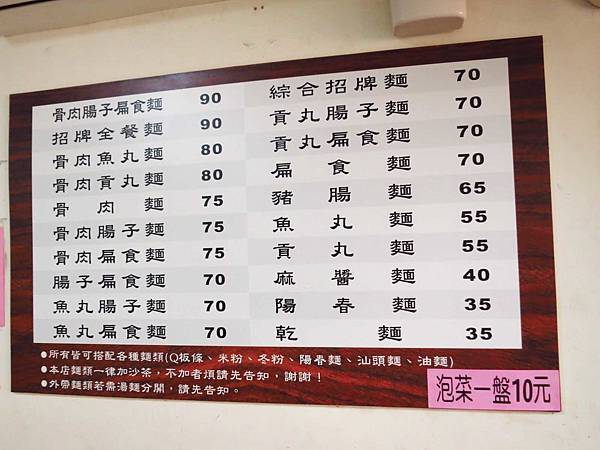 骨肉腸子扁食麵 90
招牌全餐麵 90
骨肉魚丸麵 80
骨肉貢丸麵 80
骨肉麵 75
骨肉腸子麵 75
骨肉扁食麵 75
腸子扁食麵 70
魚丸腸子麵 70
魚丸扁食麵 70
綜合招牌麵 70
貢丸腸子麵 70
貢丸扁食麵 70
扁食麵 70
豬腸麵 65
魚丸麵 55
貢丸麵 55
麻醬麵 40
陽春麵 35
乾麵 35
●所有皆可搭配各種麵類(Q板條、米粉、冬粉、陽春麵、汕頭麵、油麵)
●本店麵類一律加沙茶，不加者煩請先告知，謝謝！
●外帶麵類若需湯麵分開，請先告知。
泡菜一盤10元